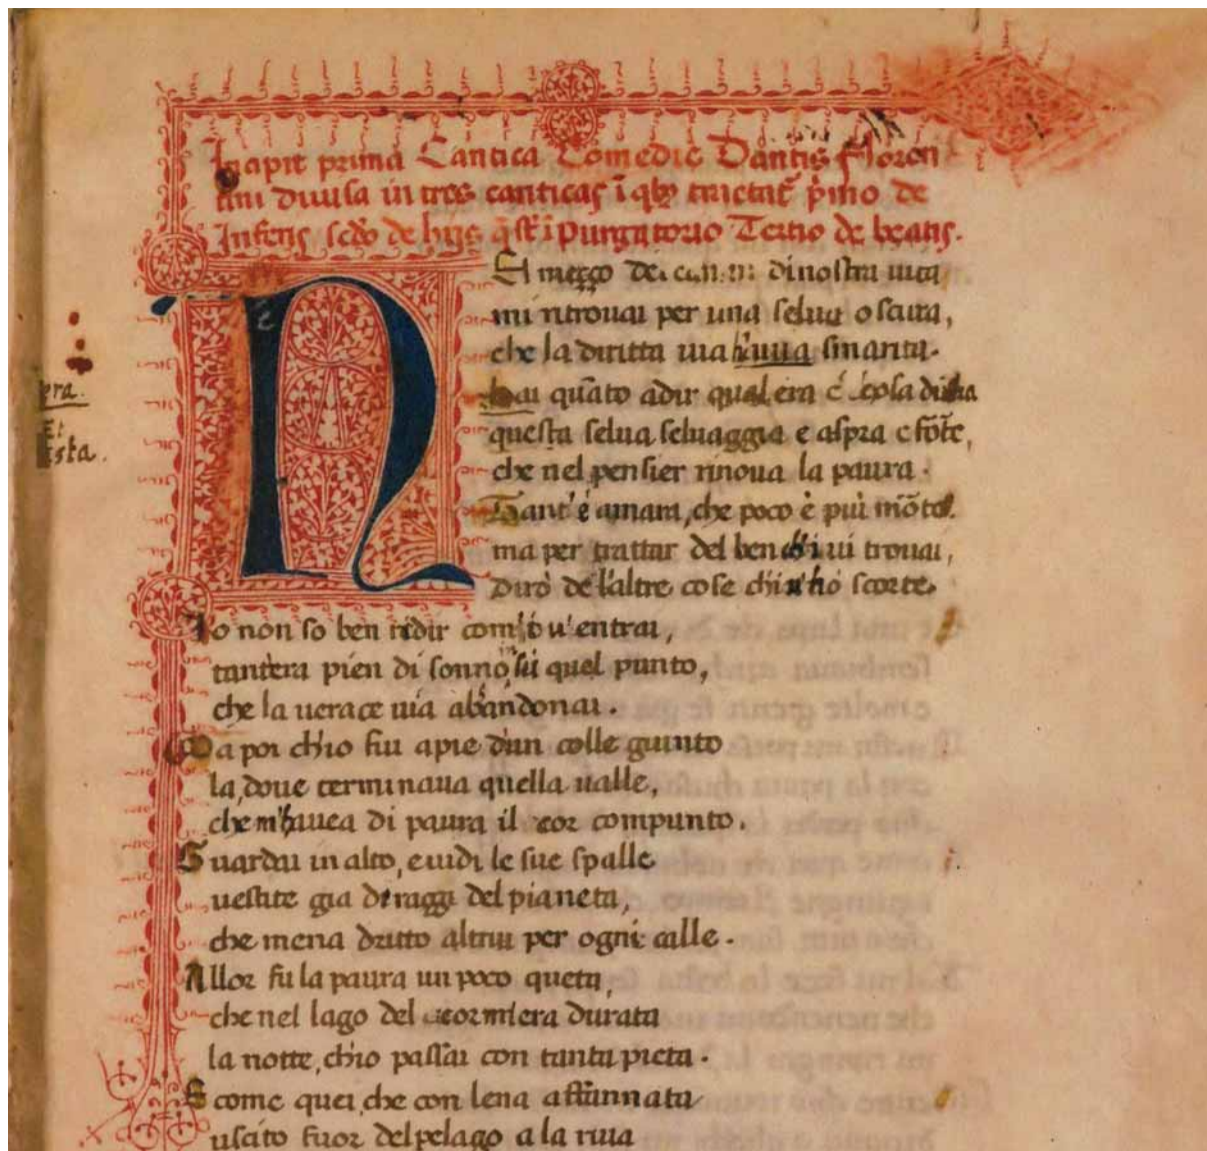 Incipit prima Cantica Comedie Dantis Floren
tini diuisa in tres canticas ī qbꝫ tractat᷑ pͥmo de
Infernis scďo de hijs q̄ st̄ ī Purgatorio Tertio de beatis.
NEl mezzo di nostra uita
mi ritrouai per una selua oscura,
che la diritta uia smarita.
hai quāto adir qual era cosa dura
questa selua seluaggia e aspra e fōte,
che nel pensier rinoua la paura.
Tant'è amara, che poco è più mōte.
ma per trattar del ben ch'i ui trouai,
Dirò de l'altre cose ch'i u'hò scorte.
Io non so ben ridir com'io u'entrai,
tantera pien di sonno in sù quel punto,
che la uerace uia abandonai.
Ma poi ch'io fui apie d'un colle giunto
la, doue terminaua quella ualle,
che m'hauea di paura il cor compunto.
Guardai in alto, e uidi le sue spalle
uestite gia de raggi del pianeta,
che mena dritto altrui per ogni calle.
Allor fu la paura un poco queta,
che nel lago del cor m'era durata
la notte, ch'io passai con tanta pieta.
E come quei, che con lena affannata
uscito fuor del pelago a la riua
era.
Et
ista.